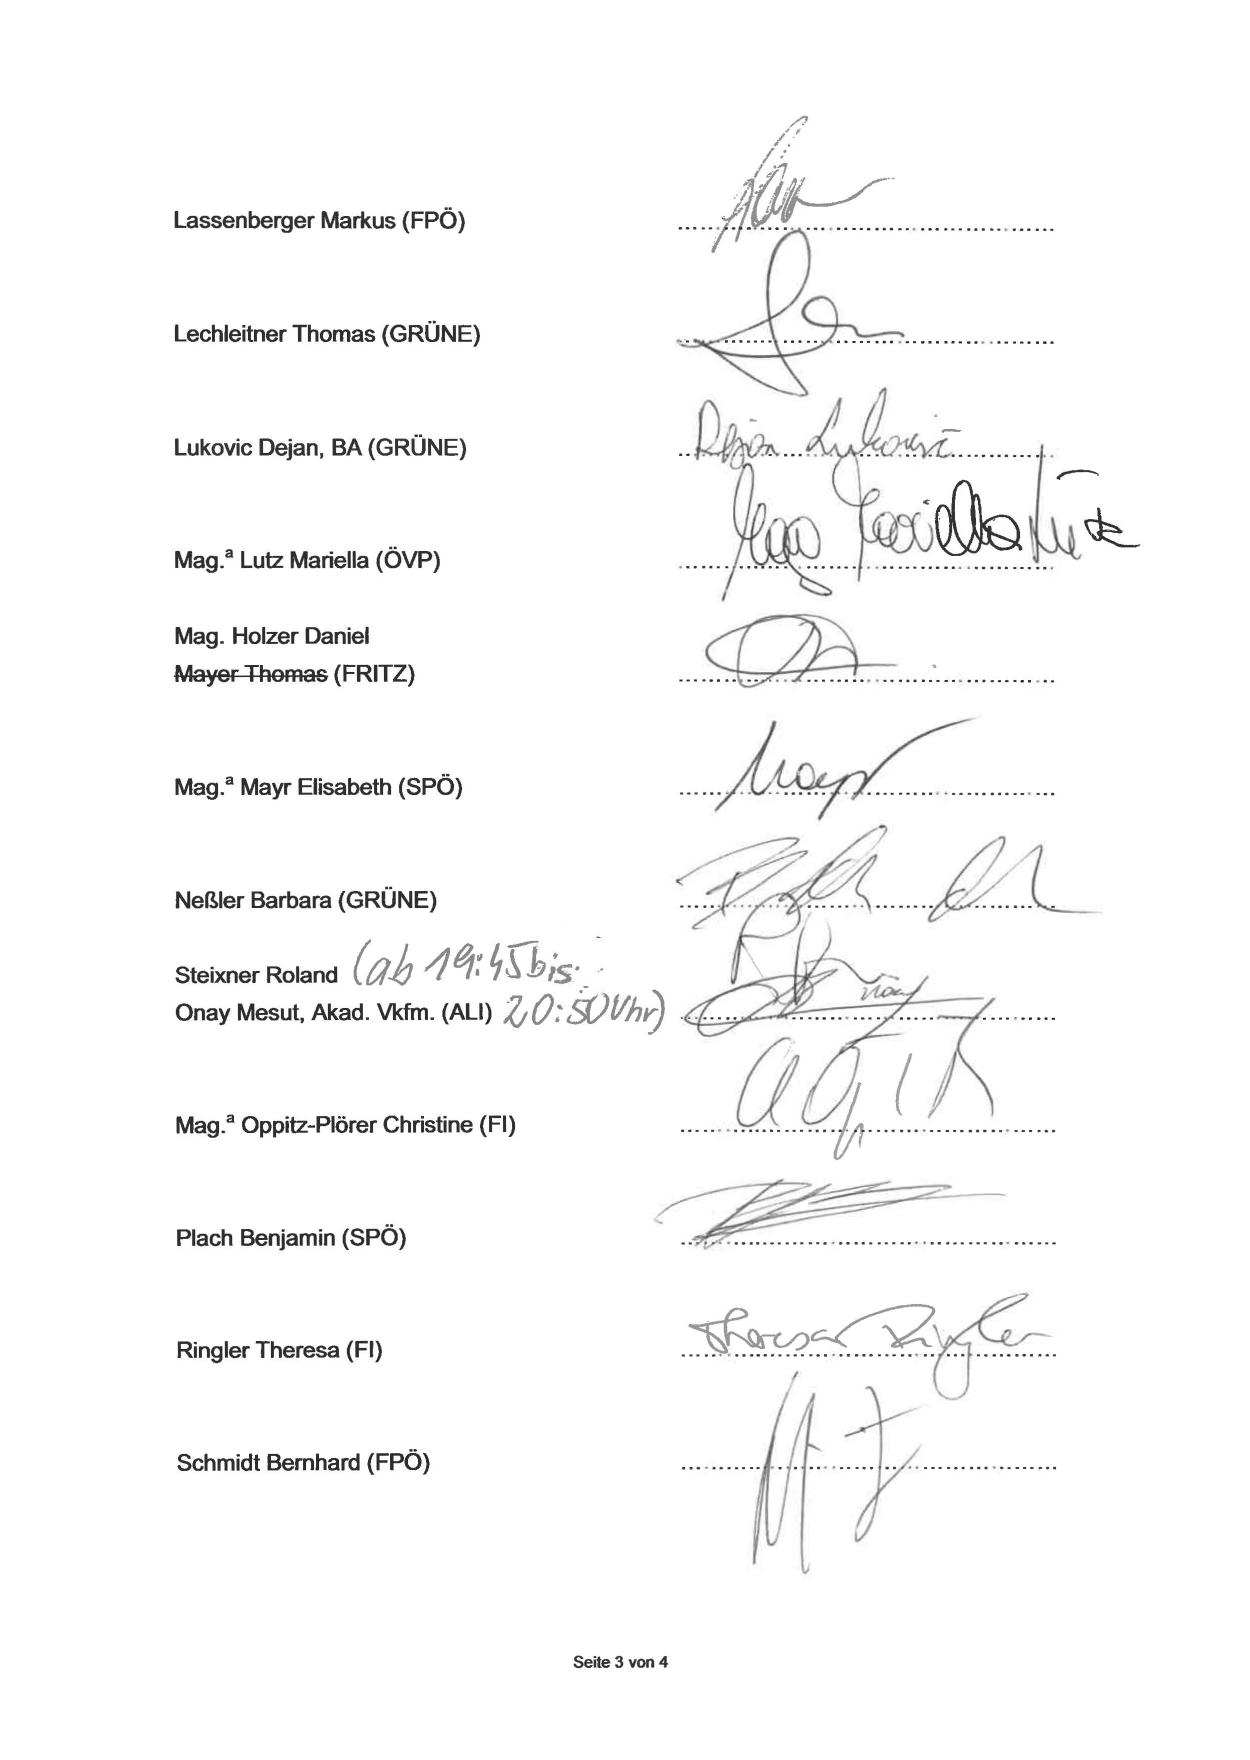 Lassenberger Markus (FPÖ)
Lechleitner Thomas (GRÜNE)
Lukovic Dejan, BA (GRÜNE) Dejan Luković
Mag.ª Lutz Mariella (ÖVP) Mag. Mariella Lutz
Mag. Holzer Daniel
Mayer Thomas (FRITZ)
Mag.ª Mayr Elisabeth (SPÖ) Mayr
Neßler Barbara (GRÜNE)
Steixner Roland (ab 19:45 bis
Onay Mesut, Akad. Vkfm. (ALI) 20:50 Uhr)
Mag.ª Oppitz-Plörer Christine (FI)
Plach Benjamin (SPÖ)
Ringler Theresa (FI) Theresa Ringler
Schmidt Bernhard (FPÖ)
Seite 3 von 4